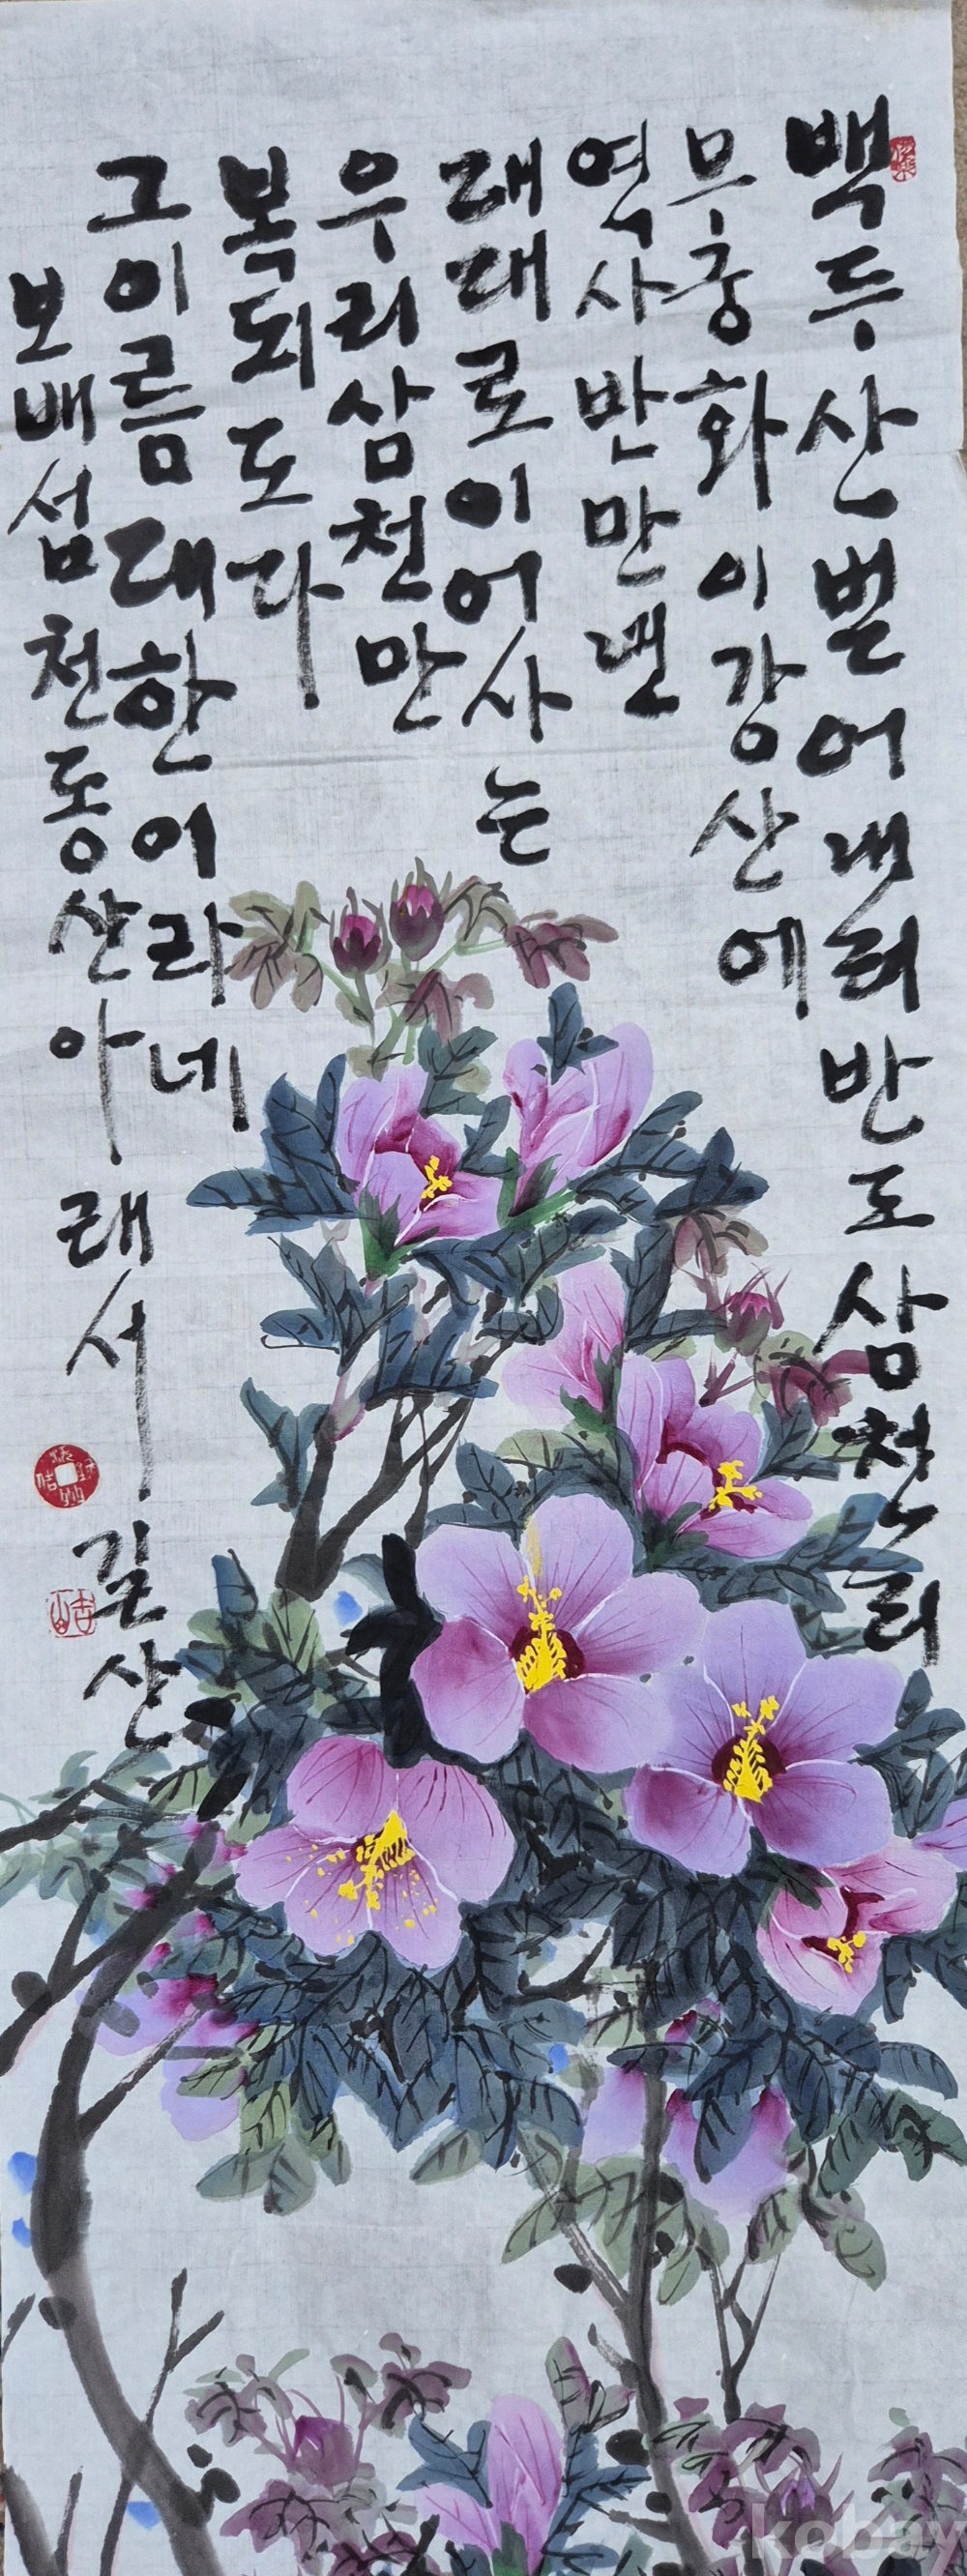 백두산벋어내려반도삼천리
무궁화이강산에
역사반만년
대대로이어사는
우리삼천만
복되도다
그이름대한이라네
보배섬천동산아래서
길산
kobay